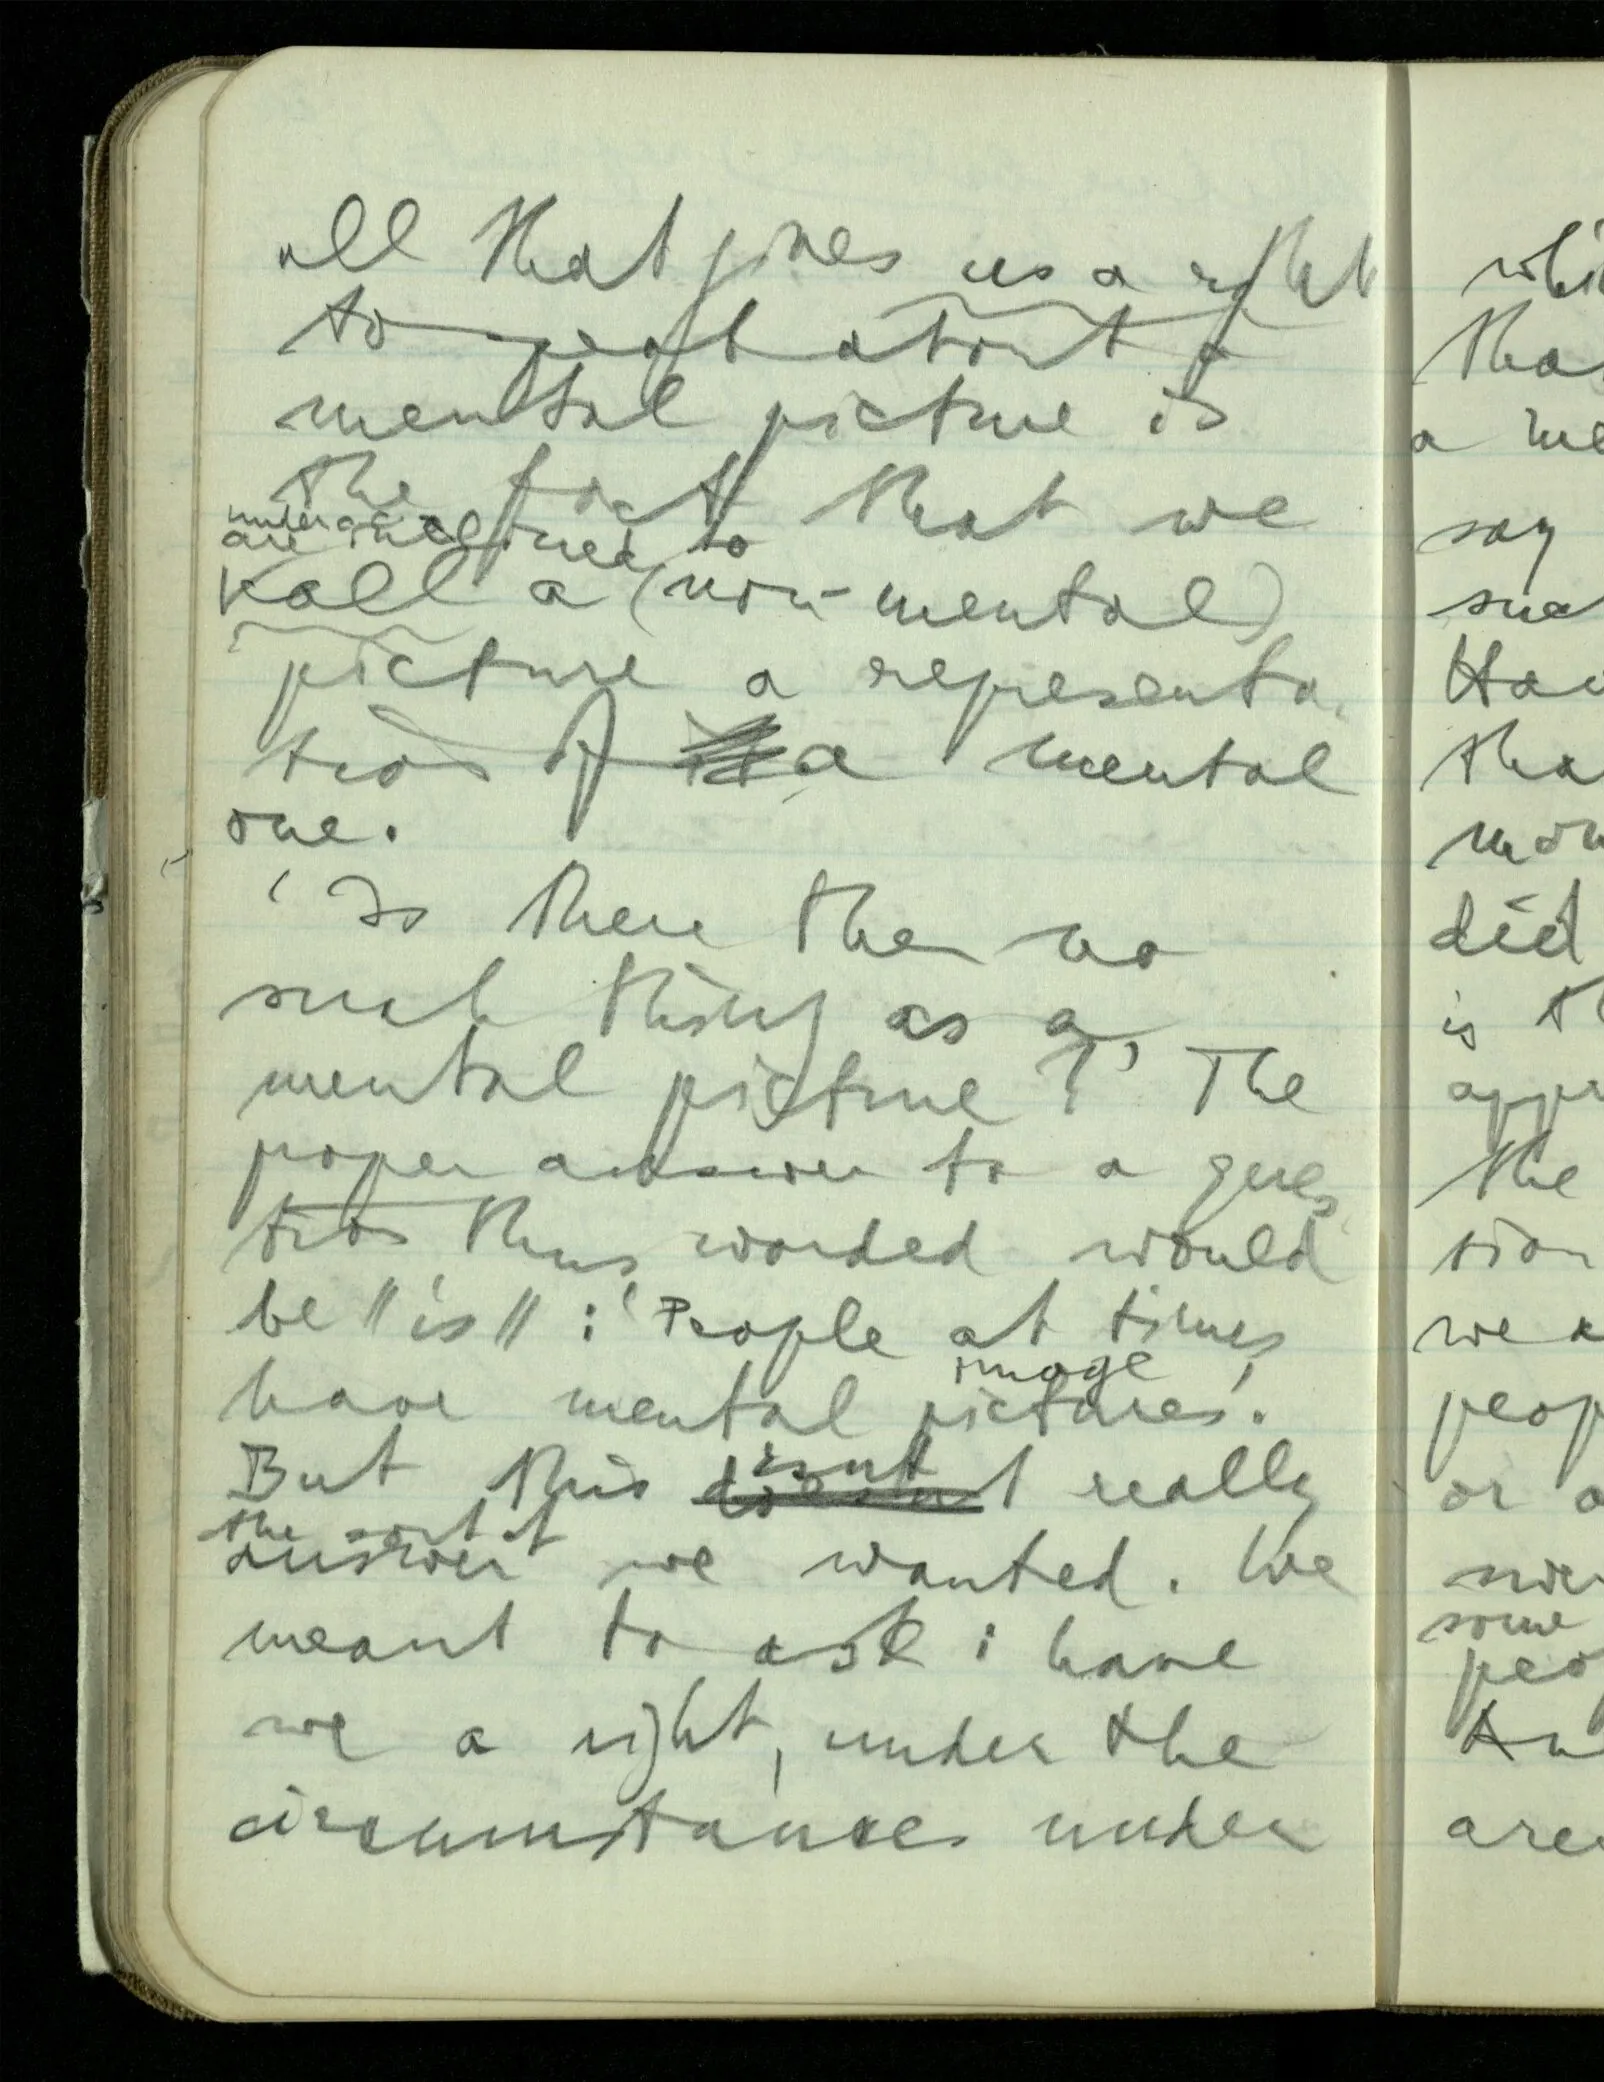 all that gives us a right
to speak about a
mental picture is
the fact that we
under
are inclined to
call a (non-mental)
picture a representa-
tion of a mental
one.
'Is there then no
such thing as a
mental picture?' The
proper answer to a ques
tion thus worded would
be "is": 'People at times
image
have mental pictures'.
But this doesnt really
isnt
the sort of
answer we wanted. We
meant to ask: have
we a right, under the
circumstances under
whi
tha
a me
say
suc
Hav
tha
mom
did
is th
appr
the
sion
we a
peop
or a
some
peo
are